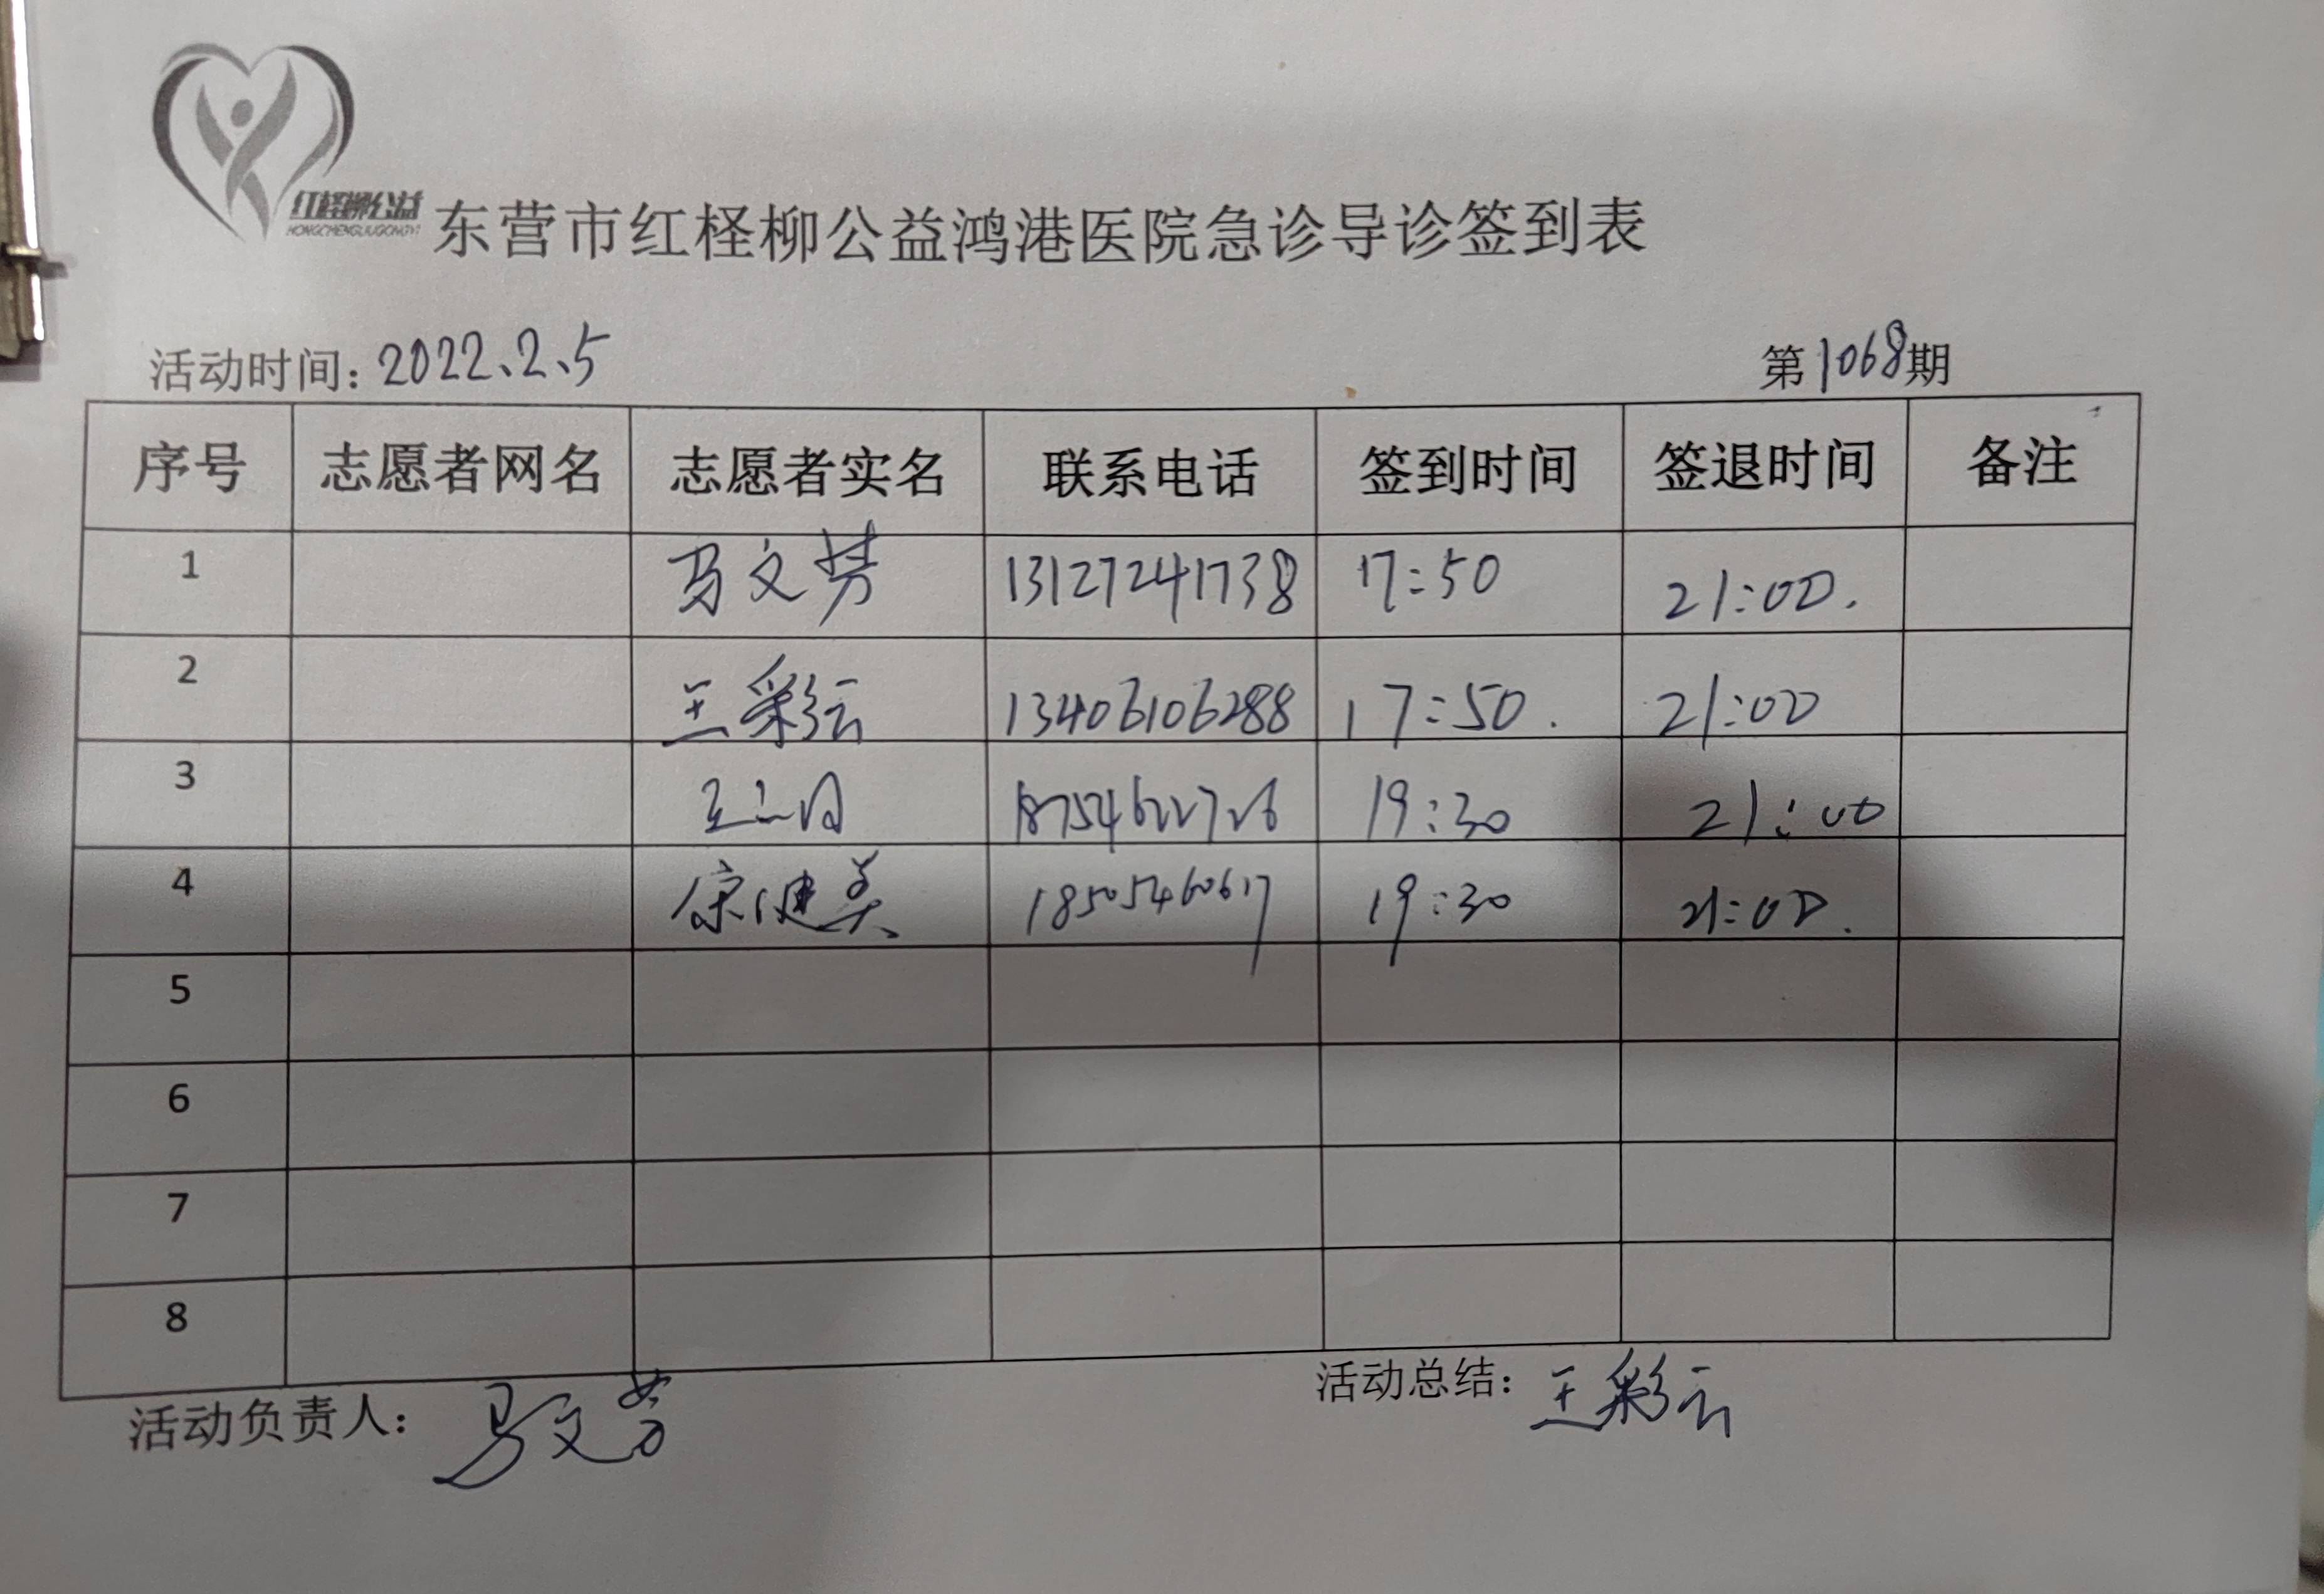 红柽柳公益
HONGCHENGLIUGONGYI
东营市红柽柳公益鸿港医院急诊导诊签到表
活动时间: 2022、2、5 第1068期
序号 志愿者网名 志愿者实名 联系电话 签到时间 签退时间 备注
1 马文芳 13127241738 17:50 21:00.
2 王彩云 13406106288 17:50. 21:00
3 18754622726 19:30 21:00
4 宋健美 18505460617 19:30 21:00.
5
6
7
8
活动负责人: 马文芳 活动总结: 王彩云